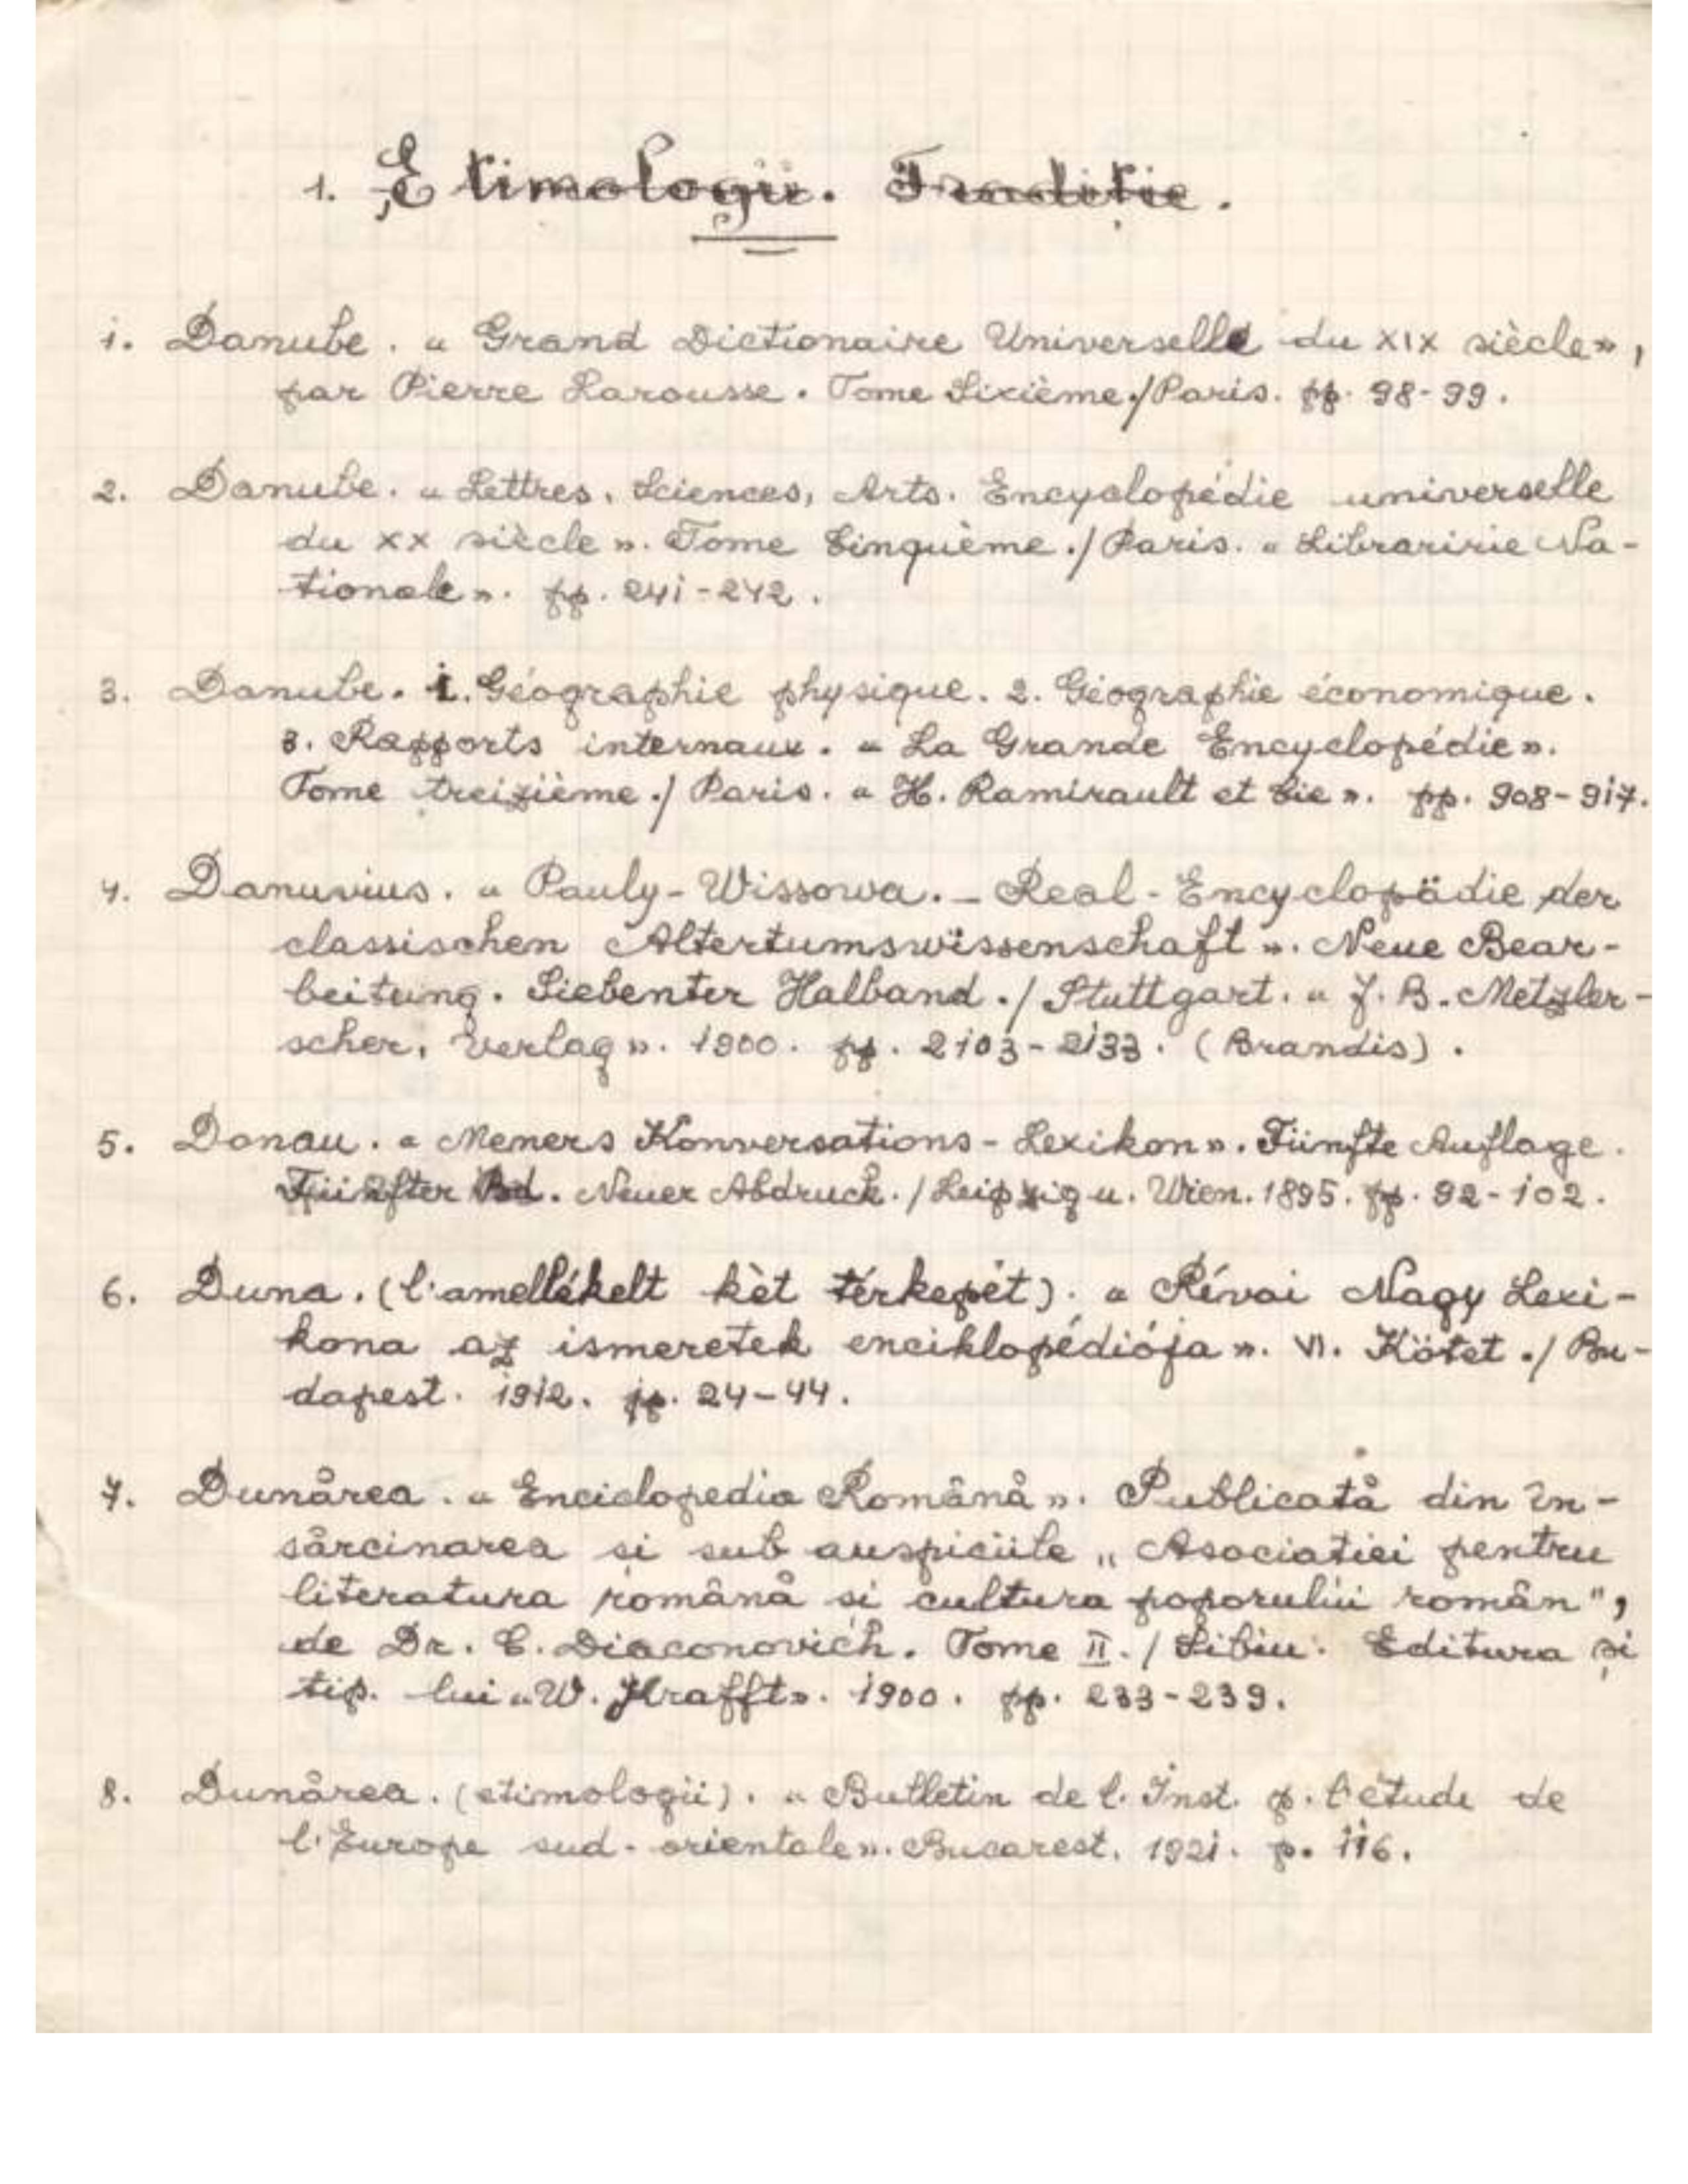 1. Etimologii. Traditie.
1. Danube. « Grand Dictionaire Universelle du XIX siècle»,
par Pierre Larousse. Tome Sixième./Paris. pp. 98-99.
2. Danube. « Lettres, Sciences, Arts. Encyclopédie universelle
du XX siècle». Tome Cinquème./ Paris. « Libraririe Na-
tionale». pp. 241-242.
3. Danube. 1. Géographie physique. 2. Géographie économique.
3. Rapports internaux. « La Grande Encyclopédie».
Tome treizième./ Paris. « H. Ramirault et Cie». pp. 908-917.
4. Danuvius. « Pauly-Wissowa. - Real-Encyclopädie der
classischen Altertumswissenschaft». Neue Bear-
beitung. Siebenter Halband./ Stuttgart. « J. B. Metzler-
scher, Verlag». 1900. pp. 2103-2133. (Brandis).
5. Donau. « Memers Konversations-Lexikon». Fünfte Auflage.
Fünfter Bd. Neuer Abdruck./Leipzig u. Wien. 1895. pp. 92-102.
6. Duna. (l'amellékelt kèt térkepét). « Révai Nagy Lexi-
kona az ismeretek enciklopédiója». VI. Kötet./ Bu-
dapest. 1912. pp. 24-44.
7. Dunårea. « Enciclopedia Românå». Publicatå din în-
sårcinarea si sub auspiciile „Asociatiei pentru
literatura românå si cultura poporului român",
de Dr. C. Diaconovich. Tome II./ Sibiu. Editura și
tip. lui «W. Krafft». 1900. pp. 233-239.
8. Dunårea. (etimologii). « Bulletin de l. Inst. p. l'étude de
l'Europe sud-orientale». Bucarest. 1921. p. 116.